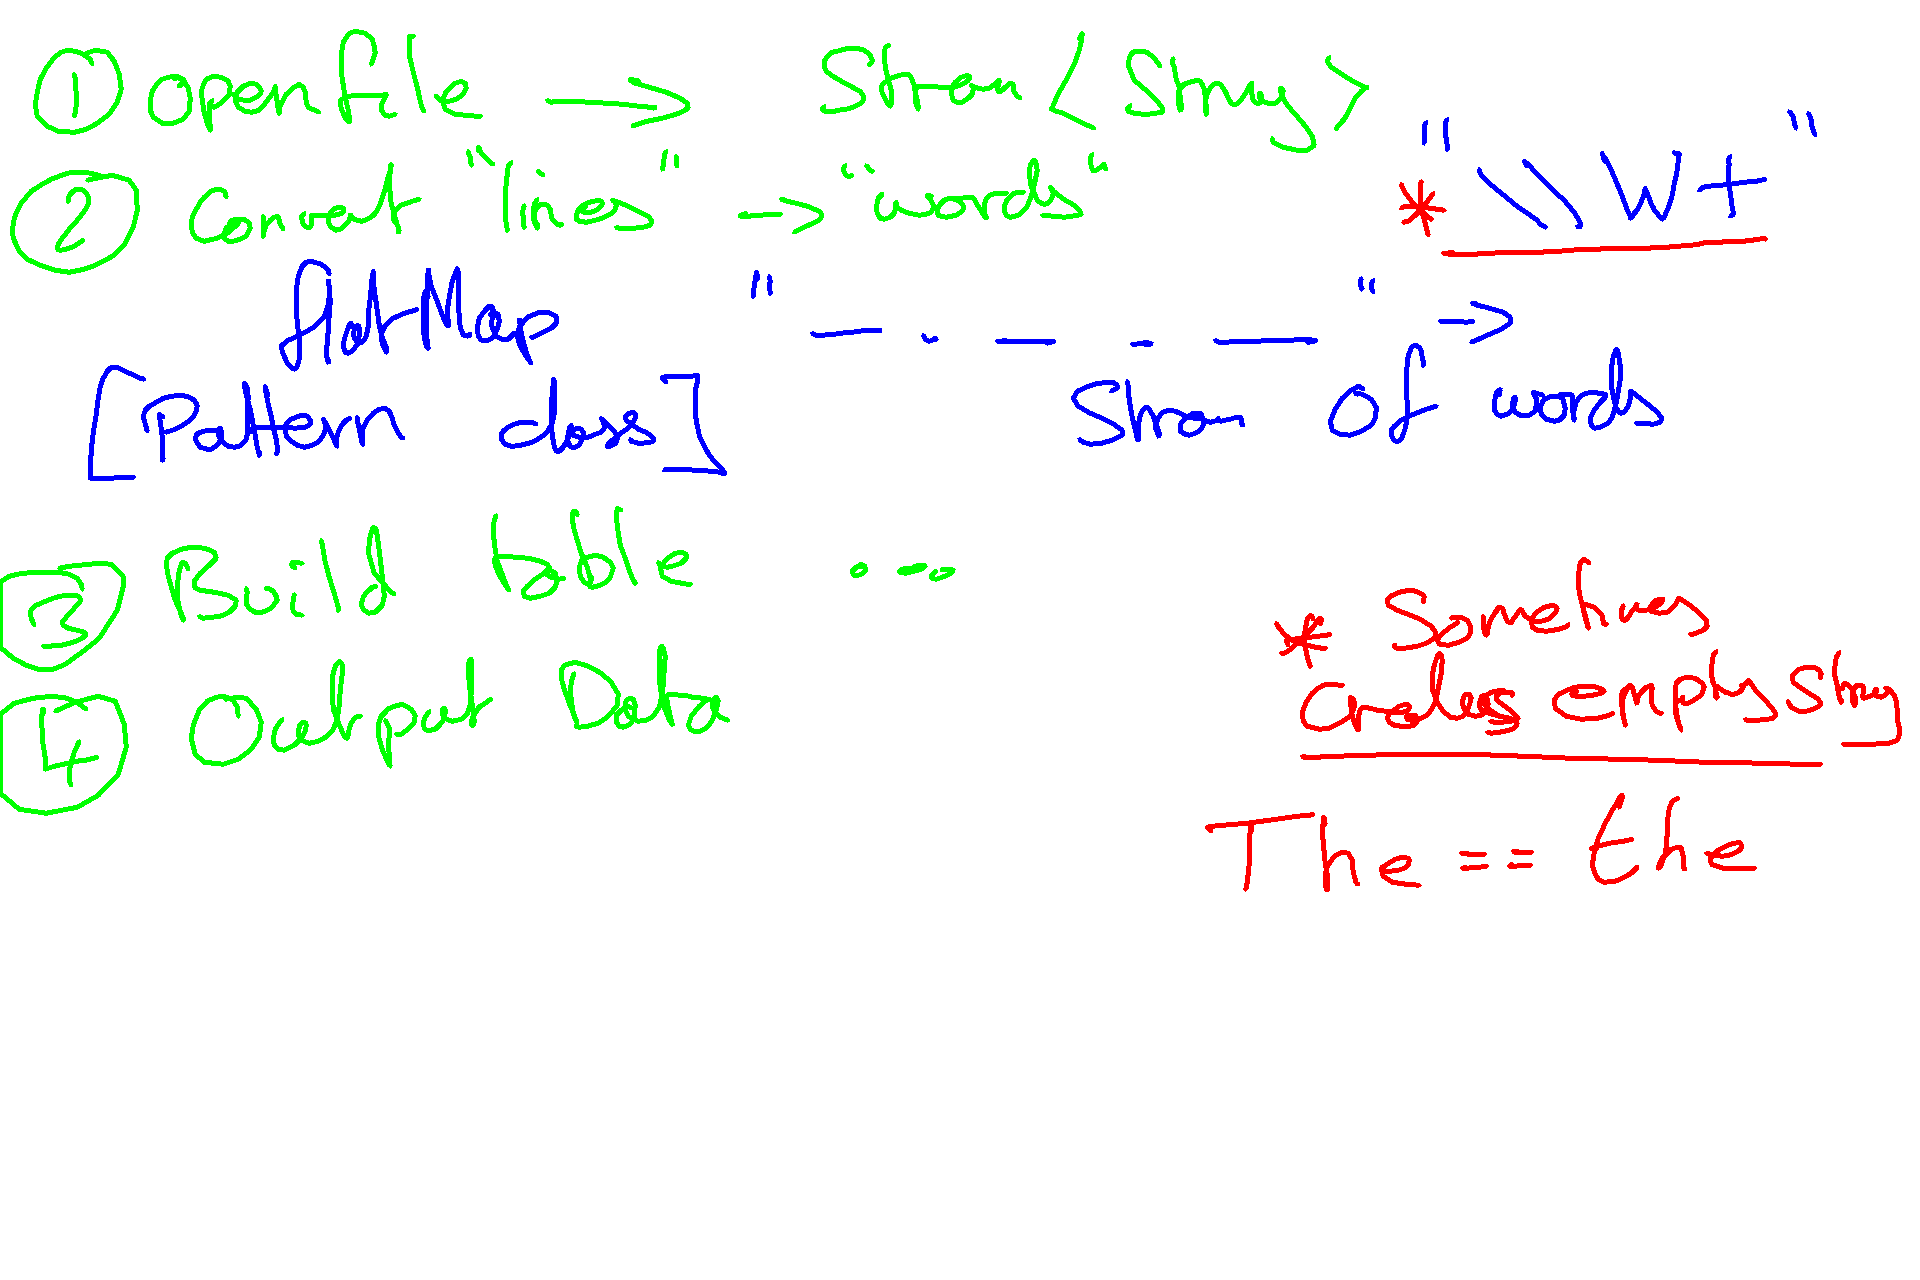 ① Open file → Stream <String>
② Convert "lines" → "words"
* "\\W+"
flatMap "— . — . —" →
[Pattern class] Stream of words
③ Build table ...
* Sometimes
creates empty string
④ Output Data
The == the